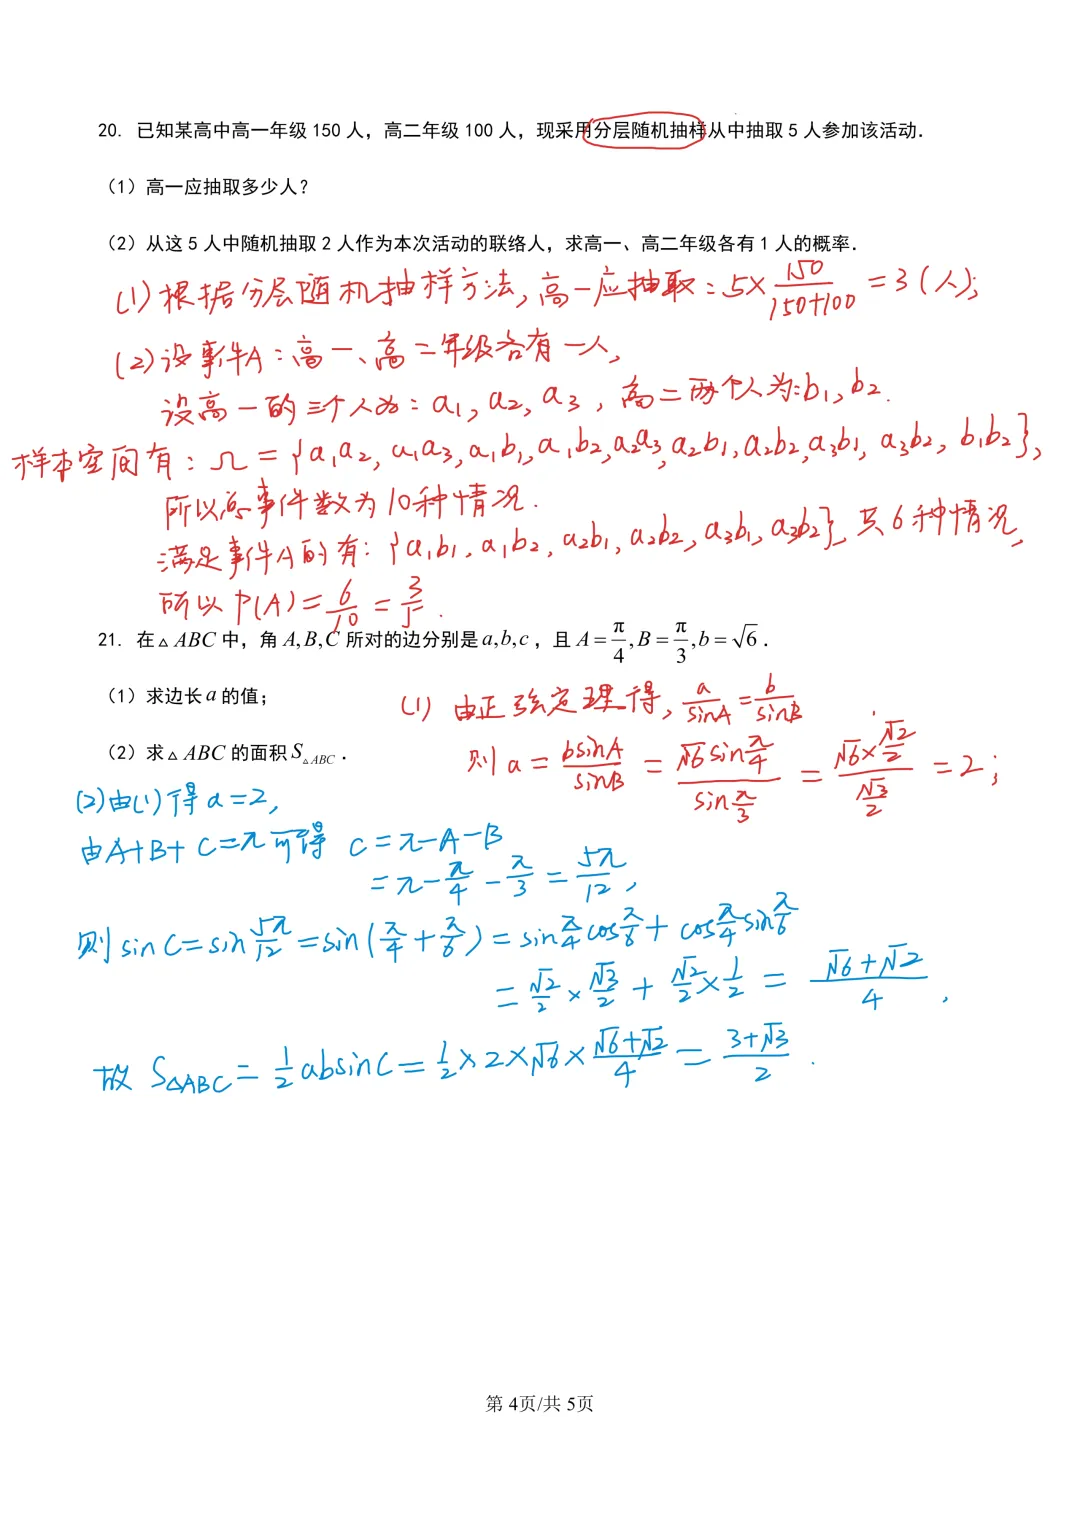 20. 已知某高中高一年级 150 人，高二年级 100 人，现采用分层随机抽样从中抽取 5 人参加该活动．
（1）高一应抽取多少人？
（2）从这 5 人中随机抽取 2 人作为本次活动的联络人，求高一、高二年级各有 1 人的概率．
(1) 根据分层随机抽样方法，高一应抽取：5×150/(150+100)=3(人)；
(2) 设事件A：高一、高二年级各有一人，
设高一的三个人为：a₁, a₂, a₃，高二两个人为：b₁, b₂．
样本空间有：Ω={a₁a₂, a₁a₃, a₁b₁, a₁b₂, a₂a₃, a₂b₁, a₂b₂, a₃b₁, a₃b₂, b₁b₂}，
所以总事件数为10种情况．
满足事件A的有：{a₁b₁, a₁b₂, a₂b₁, a₂b₂, a₃b₁, a₃b₂}，共6种情况，
所以 P(A)=6/10=3/5．
21. 在△ABC 中，角 A,B,C 所对的边分别是 a,b,c，且 A=π/4, B=π/3, b=√6．
（1）求边长 a 的值；
(1) 由正弦定理得，a/sinA=b/sinB
（2）求△ABC 的面积 S△ABC．
则 a=bsinA/sinB=√6sin π/4/sin π/3=(√6×√2/2)/(√3/2)=2；
(2) 由(1)得 a=2，
由A+B+C=π可得 C=π-A-B
=π-π/4-π/3=5π/12，
则 sinC=sin 5π/12=sin(π/4+π/6)=sin π/4 cos π/6+cos π/4 sin π/6
=√2/2×√3/2+√2/2×1/2=(√6+√2)/4，
故 S△ABC=1/2absinC=1/2×2×√6×(√6+√2)/4=(3+√3)/2．
第 4页/共 5页